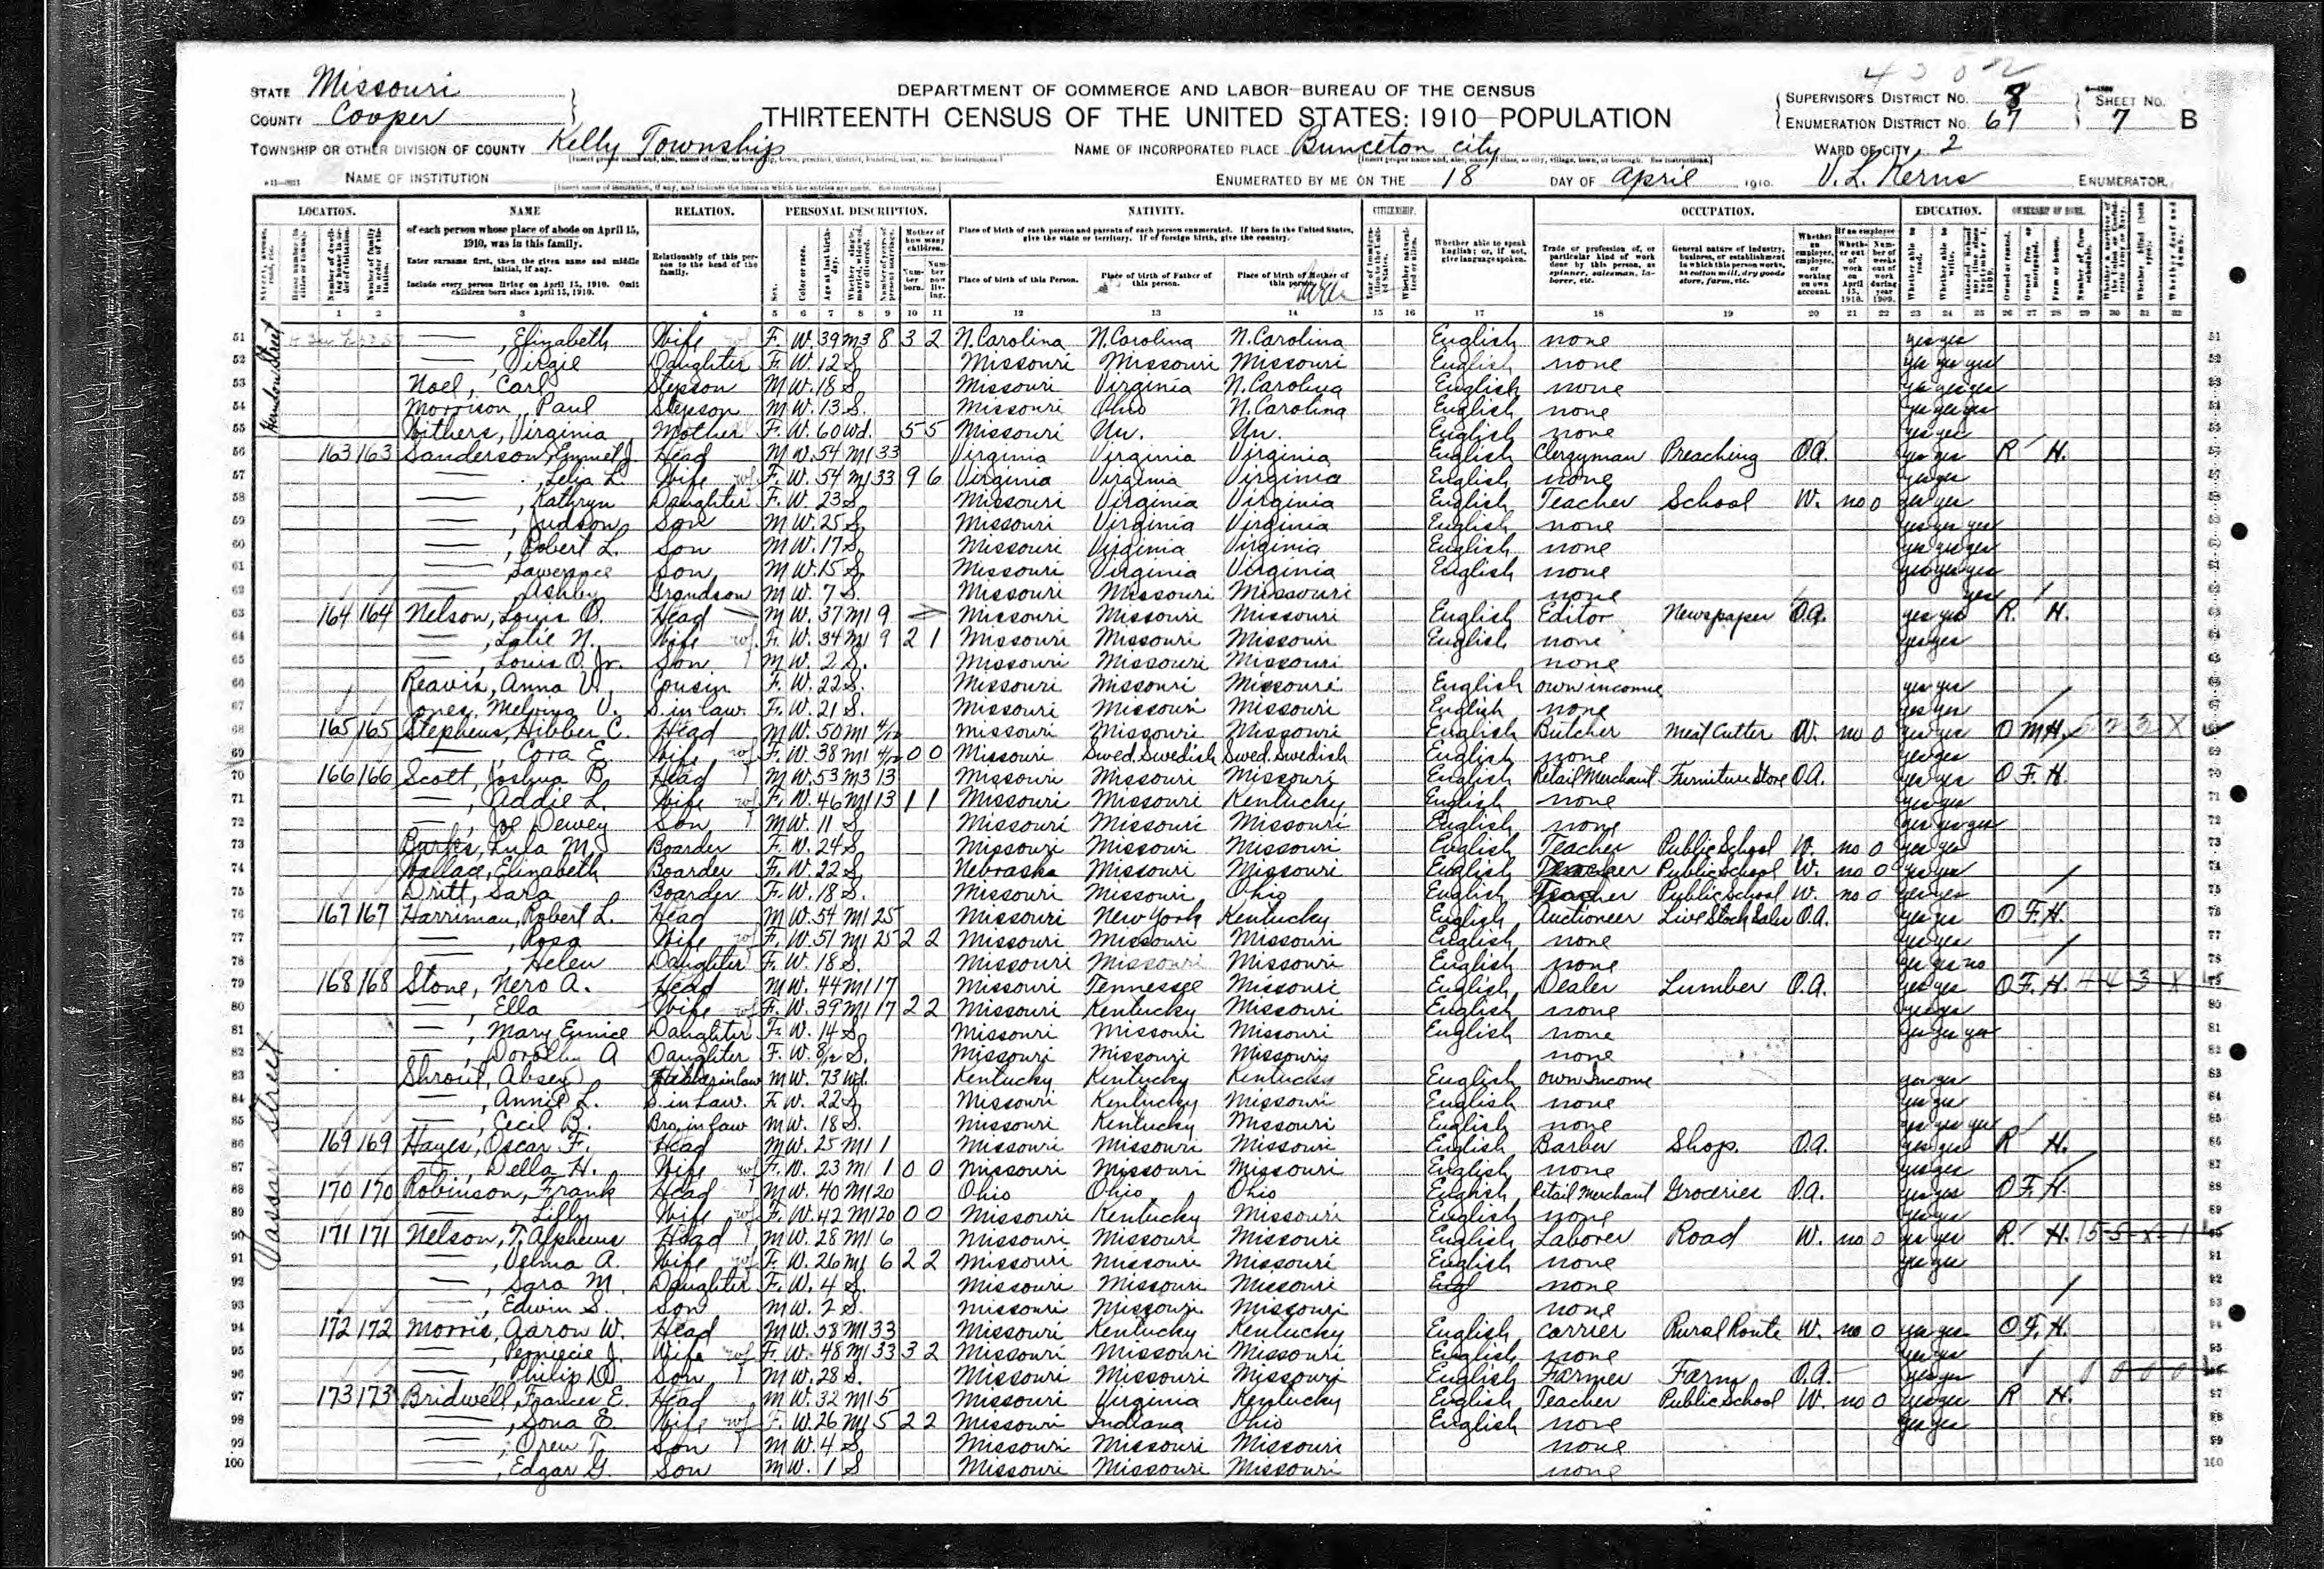 4 3 0
STATE Missouri
COUNTY Cooper
DEPARTMENT OF COMMERCE AND LABOR—BUREAU OF THE CENSUS
THIRTEENTH CENSUS OF THE UNITED STATES: 1910—POPULATION
SUPERVISOR'S DISTRICT NO. 8
ENUMERATION DISTRICT NO. 67
SHEET NO. 7 B
TOWNSHIP OR OTHER DIVISION OF COUNTY Kelly Township
NAME OF INCORPORATED PLACE Bunceton City
WARD OF CITY 2
NAME OF INSTITUTION
ENUMERATED BY ME ON THE 18 DAY OF April 1910. V. L. Kerns ENUMERATOR.
LOCATION. NAME RELATION. PERSONAL DESCRIPTION. NATIVITY. CITIZENSHIP. OCCUPATION. EDUCATION. OWNERSHIP OF HOME.
of each person whose place of abode on April 15, 1910, was in this family.
Enter surname first, then the given name and middle initial, if any.
Include every person living on April 15, 1910. Omit children born since April 15, 1910.
Relationship of this person to the head of the family.
Place of birth of each person and parents of each person enumerated. If born in the United States, give the state or territory. If of foreign birth, give the country.
Place of birth of this Person. Place of birth of Father of this person. Place of birth of Mother of this person.
Whether able to speak English; or, if not, give language spoken.
Trade or profession of, or particular kind of work done by this person, as spinner, salesman, laborer, etc.
General nature of industry, business, or establishment in which this person works, as cotton mill, dry goods store, farm, etc.
1 2 3 4 5 6 7 8 9 10 11 12 13 14 15 16 17 18 19 20 21 22 23 24 25 26 27 28 29 30 31 32
51 —, Elizabeth Wife F. W. 39 M3 8 3 2 N. Carolina N. Carolina N. Carolina English none yes yes
52 —, Virgie Daughter F. W. 12 S. Missouri Missouri Missouri English none yes yes yes
53 Noel, Carl Stepson M W. 18 S. Missouri Virginia N. Carolina English none yes yes yes
54 Morrison, Paul Stepson M W. 13 S. Missouri Ohio N. Carolina English none yes yes yes
55 Withers, Virginia Mother F. W. 60 Wd. 5 5 Missouri Un. Un. English none yes yes
56 163 163 Sanderson, Emmet J. Head M W. 54 M1 33 Virginia Virginia Virginia English Clergyman Preaching O.A. yes yes R H.
57 —, Lelia L. Wife F. W. 54 M1 33 9 6 Virginia Virginia Virginia English none yes yes
58 —, Kathryn Daughter F. W. 23 S. Missouri Virginia Virginia English Teacher School W. no 0 yes yes
59 —, Judson Son M W. 25 S. Missouri Virginia Virginia English none yes yes yes
60 —, Robert L. Son M W. 17 S. Missouri Virginia Virginia English none yes yes yes
61 —, Lawerence Son M W. 15 S. Missouri Virginia Virginia English none yes yes yes
62 —, Ashby Grandson M W. 7 S. Missouri Missouri Missouri none yes
63 164 164 Nelson, Louis O. Head M W. 37 M1 9 Missouri Missouri Missouri English Editor Newspaper O.A. yes yes R. H.
64 —, Latie N. Wife F. W. 34 M1 9 2 1 Missouri Missouri Missouri English none yes yes
65 —, Louis O. Jr. Son M W. 2 S. Missouri Missouri Missouri none
66 Reavis, Anna V. Cousin F. W. 22 S. Missouri Missouri Missouri English own income yes yes
67 Jones, Melvina V. S. in law. F. W. 21 S. Missouri Missouri Missouri English none yes yes
68 165 165 Stephens, Hibber C. Head M W. 50 M1 4/12 Missouri Missouri Missouri English Butcher Meat Cutter W. no 0 yes yes O M H.
69 —, Cora E. Wife F. W. 38 M1 4/12 0 0 Missouri Swed. Swedish Swed. Swedish English none yes yes
70 166 166 Scott, Joshua B. Head M W. 53 M3 13 Missouri Missouri Missouri English Retail Merchant Furniture Store O.A. yes yes O F. H.
71 —, Addie L. Wife F. W. 46 M1 13 1 1 Missouri Missouri Kentucky English none yes yes
72 —, Joe Dewey Son M W. 11 S. Missouri Missouri Missouri English none yes yes yes
73 Burks, Lula M. Boarder F. W. 24 S. Missouri Missouri Missouri English Teacher Public School W. no 0 yes yes
74 Wallace, Elizabeth Boarder F. W. 22 S. Nebraska Missouri Missouri English Teacher Public School W. no 0 yes yes
75 Dritt, Sara Boarder F. W. 18 S. Missouri Missouri Ohio English Teacher Public School W. no 0 yes yes
76 167 167 Harriman, Robert L. Head M W. 54 M1 25 Missouri New York Kentucky English Auctioneer Live Stock Sales O.A. yes yes O F. H.
77 —, Rosa Wife F. W. 51 M1 25 2 2 Missouri Missouri Missouri English none yes yes
78 —, Helen Daughter F. W. 18 S. Missouri Missouri Missouri English none yes yes no
79 168 168 Stone, Nero A. Head M W. 44 M1 17 Missouri Tennessee Missouri English Dealer Lumber O.A. yes yes O F. H. 4 4 3 X
80 —, Ella Wife F. W. 39 M1 17 2 2 Missouri Kentucky Missouri English none yes yes
81 —, Mary Eunice Daughter F. W. 14 S. Missouri Missouri Missouri English none yes yes yes
82 —, Dorothy A Daughter F. W. 8/12 S. Missouri Missouri Missouri none
83 Shrout, Absey Father in law M W. 73 Wd. Kentucky Kentucky Kentucky English own Income yes yes
84 —, Annie L. S. in Law. F. W. 22 S. Missouri Kentucky Missouri English none yes yes
85 —, Cecil B. Bro. in law M W. 18 S. Missouri Kentucky Missouri English none yes yes yes
86 169 169 Hayes, Oscar F. Head M W. 25 M1 1 Missouri Missouri Missouri English Barber Shop. O.A. yes yes R H.
87 —, Della H. Wife F. W. 23 M1 1 0 0 Missouri Missouri Missouri English none yes yes
88 170 170 Robinson, Frank Head M W. 40 M1 20 Ohio Ohio Ohio English Retail Merchant Groceries O.A. yes yes O F. H.
89 —, Lilly Wife F. W. 42 M1 20 0 0 Missouri Kentucky Missouri English none yes yes
90 171 171 Nelson, T. Alpheus Head M W. 28 M1 6 Missouri Missouri Missouri English Laborer Road W. no 0 yes yes R. H.
91 —, Velma A. Wife F. W. 26 M1 6 2 2 Missouri Missouri Missouri English none yes yes
92 —, Sara M. Daughter F. W. 4 S. Missouri Missouri Missouri Engl none
93 —, Edwin S. Son M W. 2 S. Missouri Missouri Missouri none
94 172 172 Morris, Aaron W. Head M W. 58 M1 33 Missouri Kentucky Kentucky English Carrier Rural Route W. no 0 yes yes O F. H.
95 —, J. Wife F. W. 48 M1 33 3 2 Missouri Missouri Missouri English none yes yes
96 —, Philip D. Son M W. 28 S. Missouri Missouri Missouri English Farmer Farm O.A. yes yes
97 173 173 Bridwell, Frances E. Head M W. 32 M1 5 Missouri Virginia Kentucky English Teacher Public School W. no 0 yes yes R H.
98 —, Sona E. Wife F. W. 26 M1 5 2 2 Missouri Indiana Ohio English none yes yes
99 —, Oren T. Son M W. 4 S. Missouri Missouri Missouri none
100 —, Edgar G. Son M W. 1 S Missouri Missouri Missouri none
Vassar Street